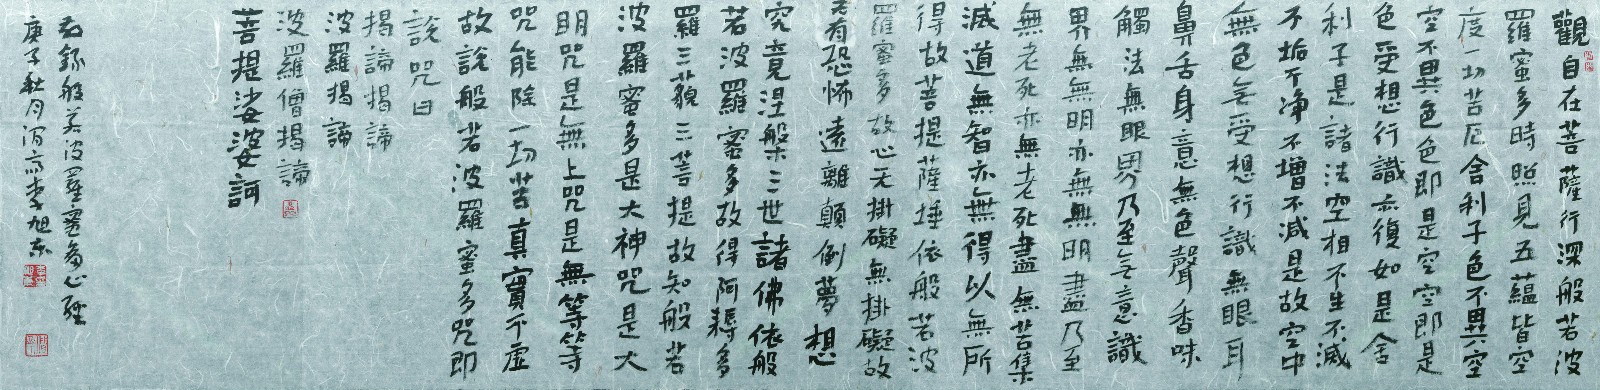 觀自在菩薩行深般若波
羅蜜多時照見五蘊皆空
度一切苦厄舍利子色不異空
空不異色色即是空空即是
色受想行識亦復如是舍
利子是諸法空相不生不滅
不垢不净不增不減是故空中
無色无受想行識無眼耳
鼻舌身意無色聲香味
觸法無眼界乃至无意識
界無無明亦無無明盡乃至
無老死亦無老死盡無苦集
滅道無智亦無得以無所
得故菩提薩埵依般若波
羅蜜多故心无掛礙無掛礙故
无有恐怖遠離顛倒夢想
究竟涅槃三世諸佛依般
若波羅蜜多故得阿耨多
羅三藐三菩提故知般若
波羅蜜多是大神咒是大
明咒是無上咒是無等等
咒能除一切苦真實不虛
故說般若波羅蜜多咒即
說咒曰
揭諦揭諦
波羅揭諦
波羅僧揭諦
菩提娑婆訶
敬錄般若波羅蜜多心經
庚子秋月渭南李旭东